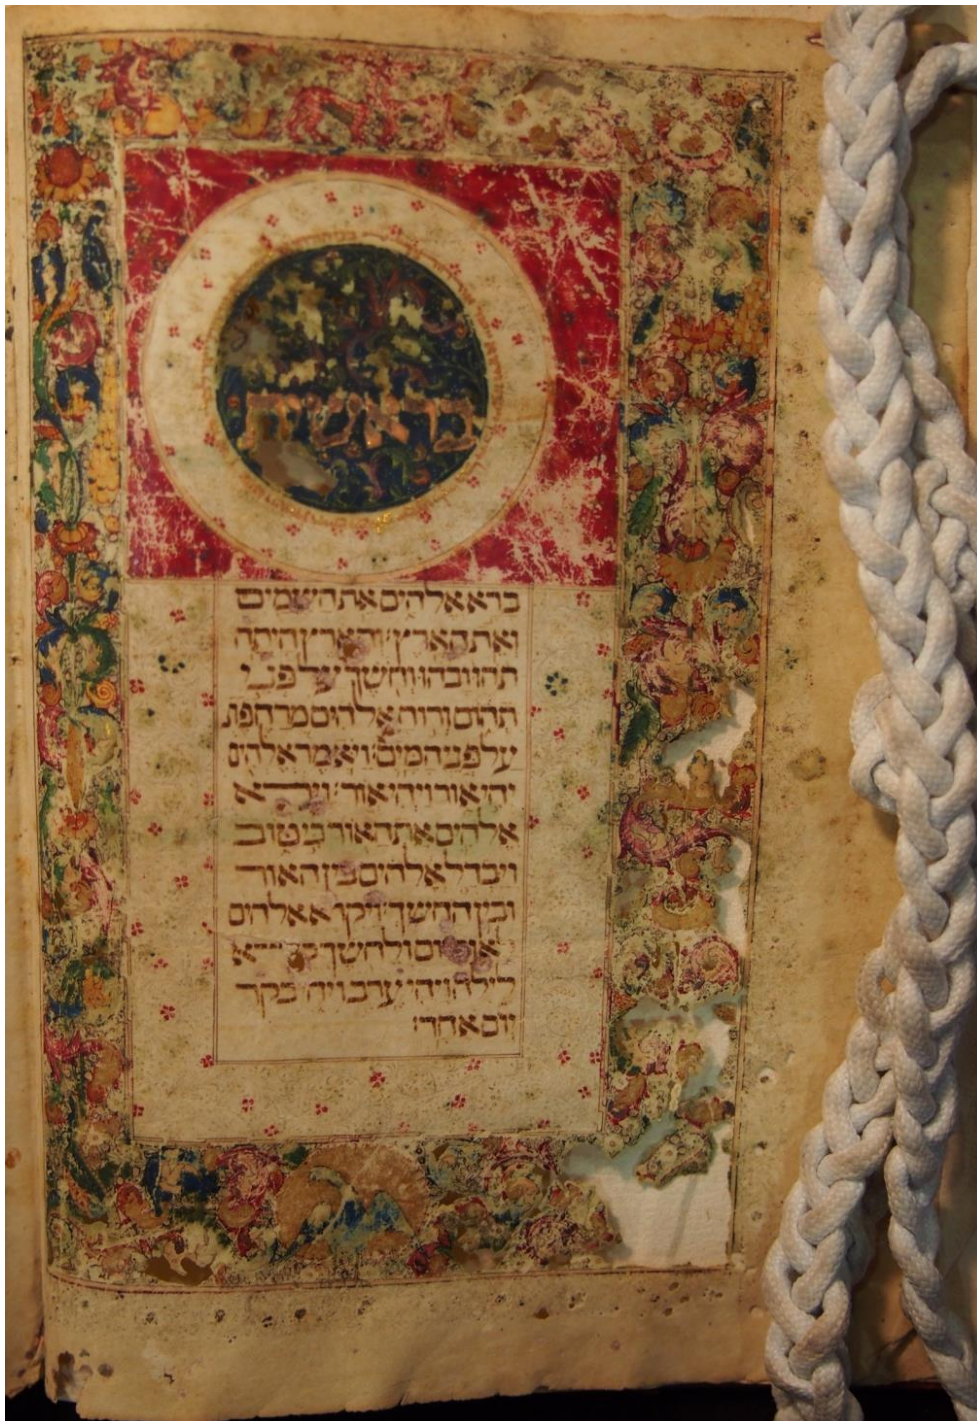 בראשית
ברא אלהים את השמים
ואת הארץ׃ והארץ היתה
תהו ובהו וחשך על פני
תהום ורוח אלהים מרחפת
על פני המים׃ ויאמר אלהים
יהי אור ויהי אור׃ וירא
אלהים את האור כי טוב
ויבדל אלהים בין האור
ובין החשך׃ ויקרא אלהים
לאור יום ולחשך קרא
לילה ויהי ערב ויהי בקר
יום אחד׃